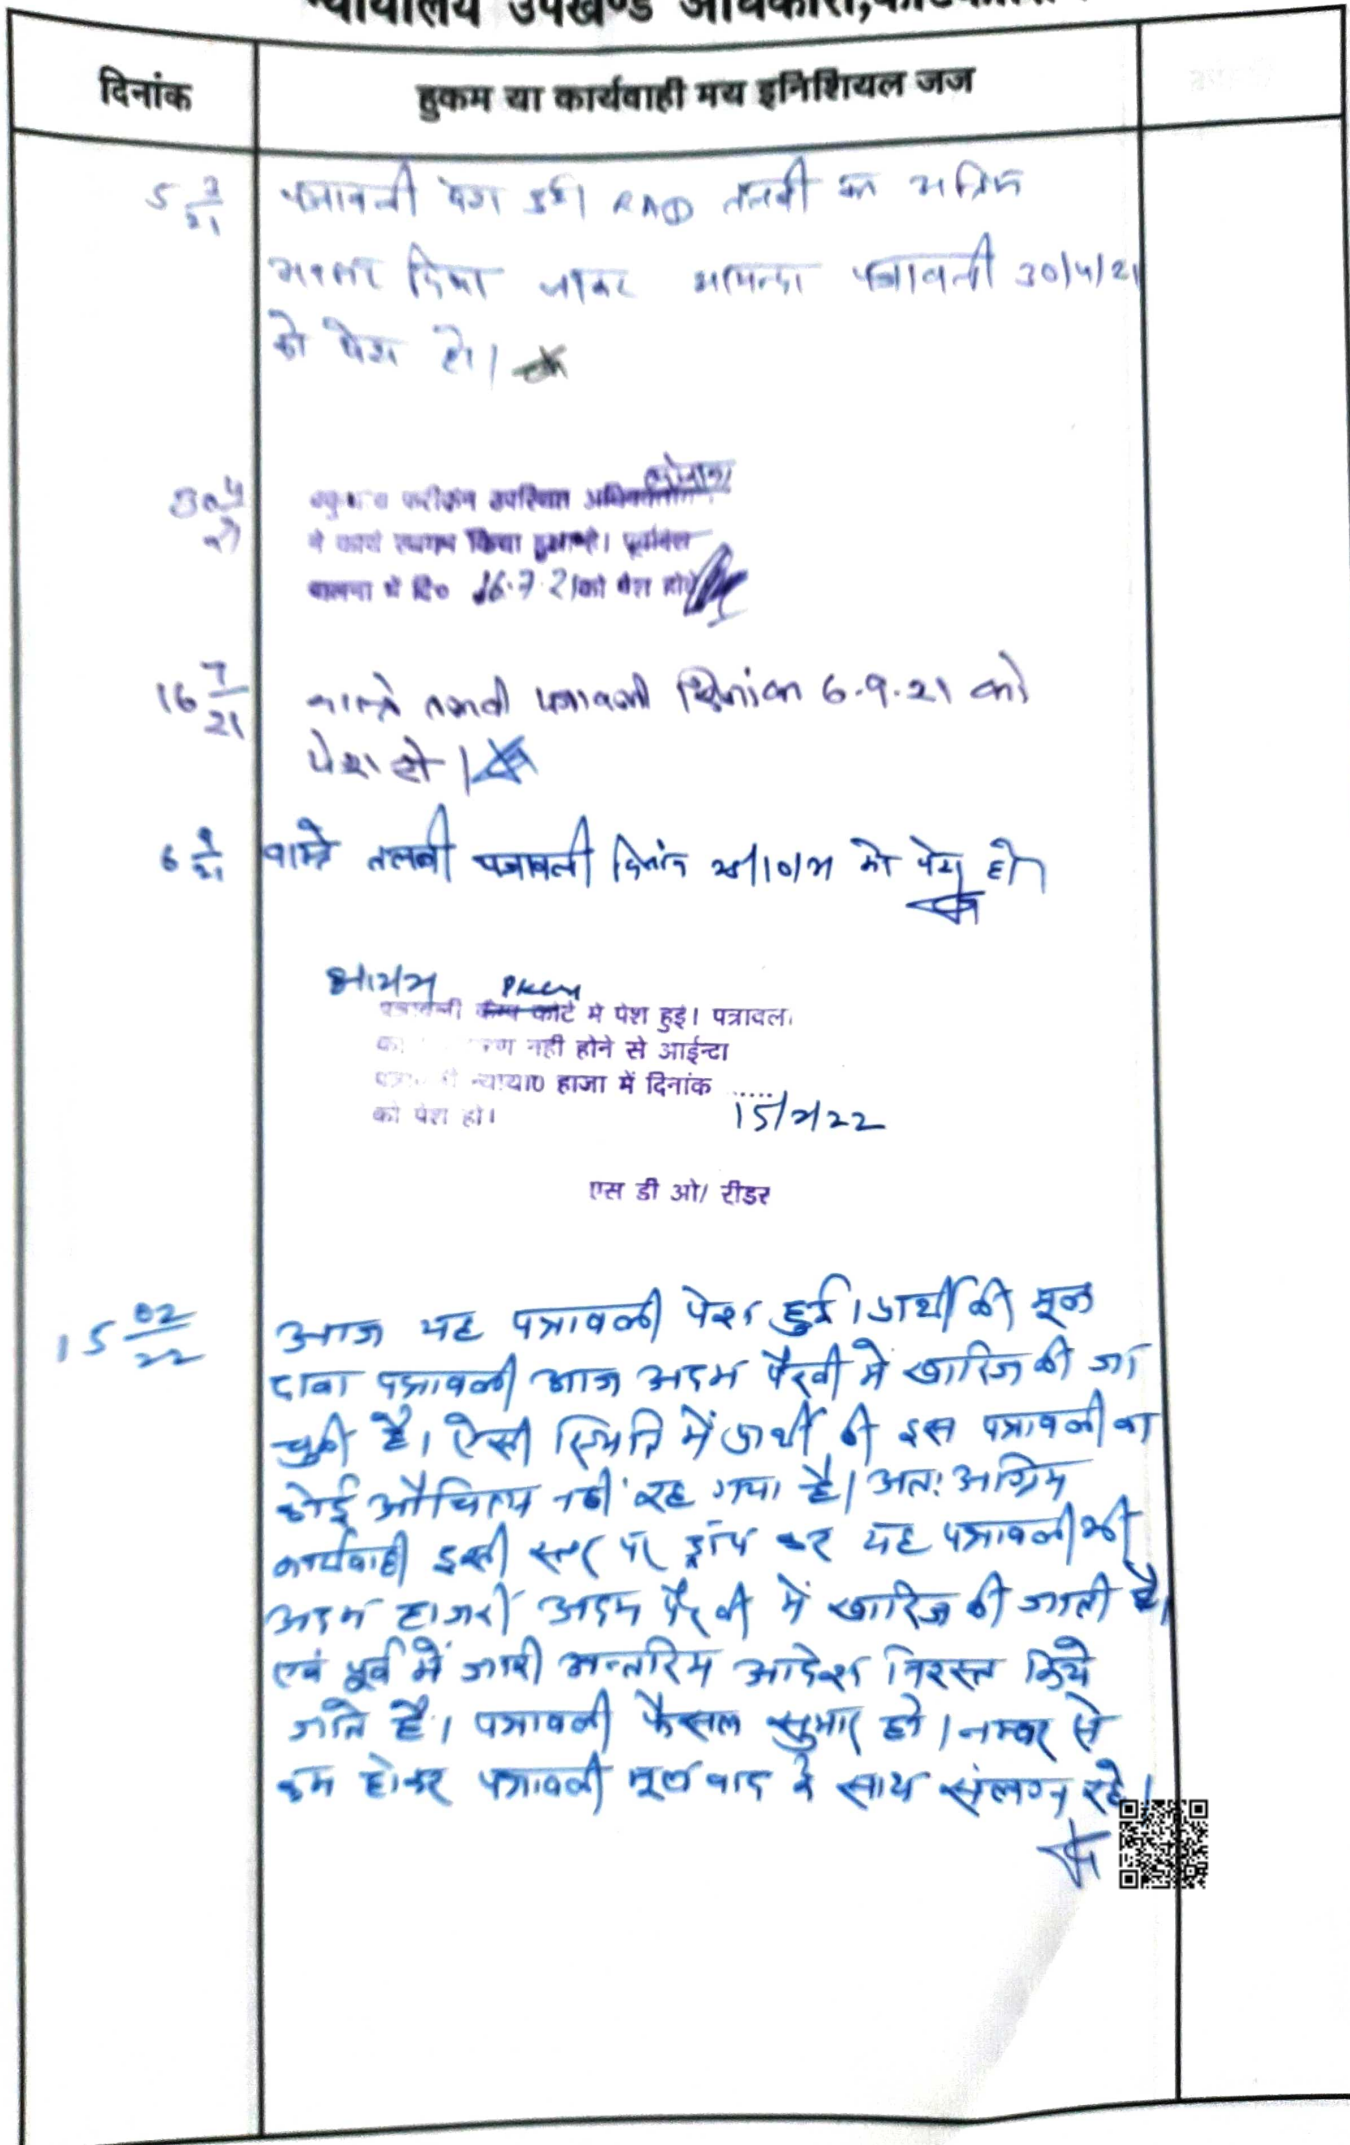 न्यायालय उपखण्ड अधिकारी,
दिनांक
हुकम या कार्यवाही मय इनिशियल जज
5 3/21
पत्रावली पेश हुई। RAD तलबी का
अवसर दिया जाकर आयन्दा पत्रावली 30/4/21
को पेश हो।
30 4/21
उपस्थित
ने कार्य स्थगन किया हुआ है। पूर्वावत
पालना में दि० 16.7.21 को पेश होवे
16 7/21
वास्ते तलबी पत्रावली दिनांक 6.9.21 को
पेश हो।
6 9/21
वास्ते तलबी पत्रावली दिनांक को पेश हो
पत्रावली कैम्प कोर्ट मे पेश हुई। पत्रावली
नही होने से आईन्दा
हाजा में दिनांक ......
को पेश हो।
15/2/22
एस डी ओ/ रीडर
15 02/22
आज यह पत्रावली पेश हुई। प्रार्थी की मूल
दावा पत्रावली आज अदम पैरवी में खारिज की जा
चुकी है। ऐसी स्थिति में प्रार्थी की इस पत्रावली का
कोई औचित्य नहीं रह गया है। अतः अग्रिम
कार्यवाही इसी स्तर पर ड्रॉप कर यह पत्रावली भी
अदम हाजरी अदम पैरवी में खारिज की जाती है।
एवं पूर्व में जारी अन्तरिम आदेश निरस्त किये
जाते है। पत्रावली फैसल सुमार हो। नम्बर से
कम होकर पत्रावली मूल वाद के साथ संलग्न रहे।